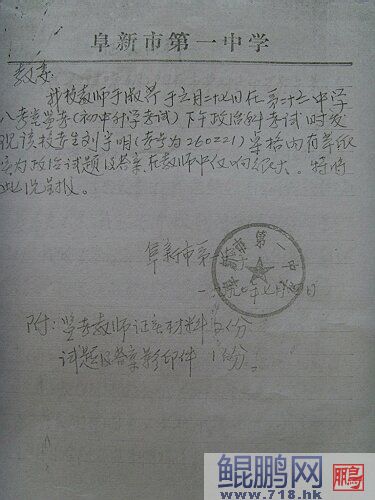 阜新市第一中学
教委:
我校教师于淑芹于六月二十七日在第二十三中学
八考堂监考(初中升学考试)下午政治科考试时发
现该校考生刘宇明(考号为260221)桌格内有草纸
为政治试题及答案,在教师中反响很大。特将
此况呈报。
阜新市第一
一九九〇年七月 日
阜新市第一中学
附:监考教师证实材料 份
试题及答案影印件 1份。
鲲鹏网 鹏
www.718.hk